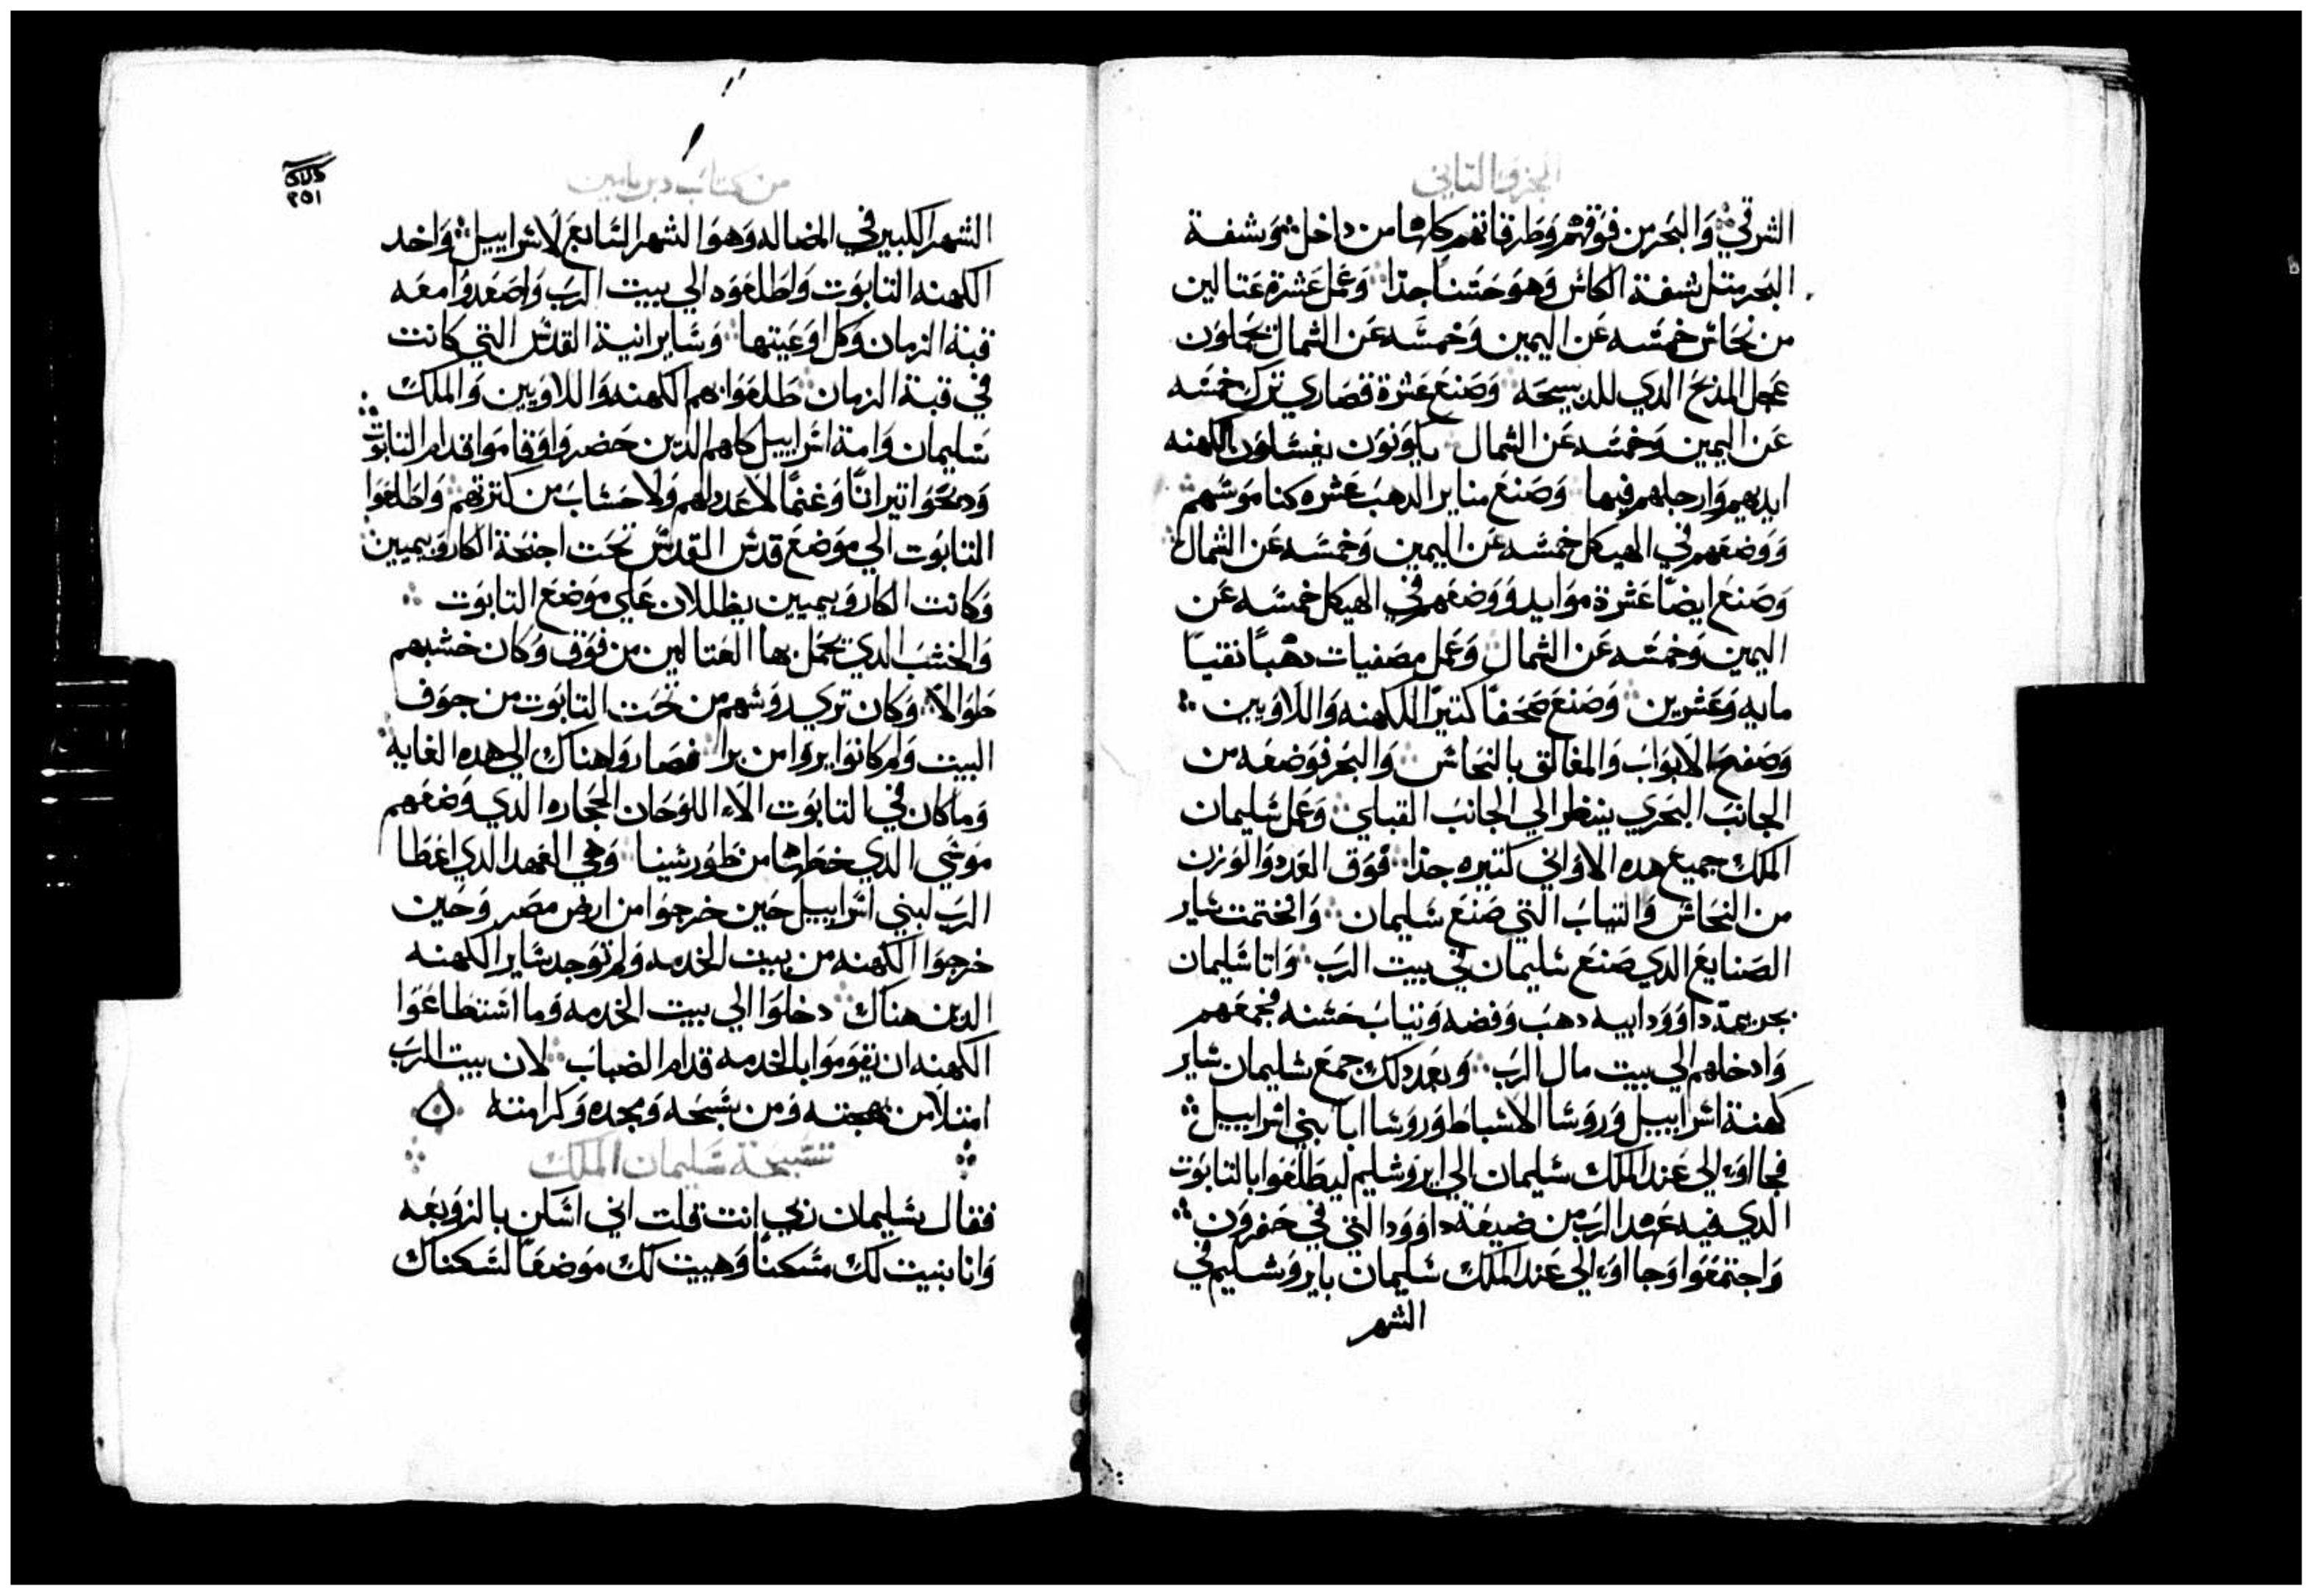 الجزو التاني
الشرقي والبحر من فوقهم وطرفاتهم كلها من داخل وشفة
البحر متل شفة الكاش وهو حسنا جدا وعمل عشرة عتالين
من نحاس خمسه عن اليمين وخمسه عن الشمال يحملون
عجل المذبح الدي للدبيحه وصنع عشرة قصاري ترك خمسه
عن اليمين وخمسه عن الشمال يكونون يغسلون الكهنه
ايديهم وارجلهم فيها وصنع مناير الدهب عشره كناموسهم
ووضعهم في الهيكل خمسه عن اليمين وخمسه عن الشمال
وصنع ايضا عشرة موايد ووضعهم في الهيكل خمسه عن
اليمين وخمسه عن الشمال وعمل مصفيات دهبا نقيا
مايه وعشرين وصنع صحفا كتيرا للكهنه واللاويين
وصفح الابواب والمغالق بالنحاس والبحر فوضعه من
الجانب البحري ينظر الي الجانب القبلي وعمل سليمان
الملك جميع هده الاواني كتيره جدا فوق العدد والوزن
من النحاس والتياب التي صنع سليمان وانختمت ساير
الصنايع الدي صنع سليمان في بيت الرب واتا سليمان
بحريمة داوود ابيه دهب وفضه وتياب حسنه فجمعهم
وادخلهم الي بيت مال الرب وبعد دلك جمع سليمان ساير
كهنة اسراييل وروسا الاسباط وروسا ابا بني اسراييل
فجااوء الي عند الملك سليمان الي ايروشليم ليطلعوا بالتابوت
الدي فيه عهد الرب من ضيعة داوود التي في حفرون
واجتمعوا وجااوء الي عند الملك سليمان بايروشليم في
الشهر
من كتاب دبريامين
٢٥١
الشهر الكبير في المضاله وهو الشهر السابع لاسراييل واخد
الكهنه التابوت واطلعوه الي بيت الرب واصعدوا معه
قبة الزمان وكل اوعيتها وساير انية القدس التي كانت
في قبة الزمان طلعوا بهم الكهنه واللاويين والملك
سليمان وامة اسراييل كلهم الدين حضروا وقاموا قدام التابوت
ودبحوا تيرانا وغنما لا عدد لهم ولا حساب من كترتهم واطلعوا
التابوت الي موضع قدس القدس تحت اجنحة الكاروبيميين
وكانت الكاروبيميين يظللان علي موضع التابوت
والخشب الدي تحمل بها العتالين من فوق وكان خشبهم
طوالا وكان تري روسهم من تحت التابوت من جوف
البيت ولم كانوا يروا من برا فصاروا هناك الي هده الغايه
وما كان في التابوت الاء اللوحان الحجاره الدي وضعهم
موسي الدي خطها من طور سينا وهي العهد الدي اعطا
الرب لبني اسراييل حين خرجوا من ارض مصر وحين
خرجوا الكهنه من بيت الخدمه ولم توجد ساير الكهنه
الدين هناك دخلوا الي بيت الخدمه وما استطاعوا
الكهنه ان يقوموا بالخدمه قدام الضباب لان بيت الرب
امتلا من بهجته ومن بسبحه ومجده وكرامته
تسبحة سليمان الملك
فقال سليمان ربي انت قلت اني اسكن بالزوبعه
وانا بنيت لك مسكنا وهييت لك موضعا لسكناك